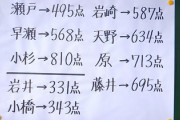 瀬戸→495点
早瀬→568点
小杉→810点
岩井→331点
小橋→343点
岩崎→587点
天野→634点
原→713点
藤井→695点